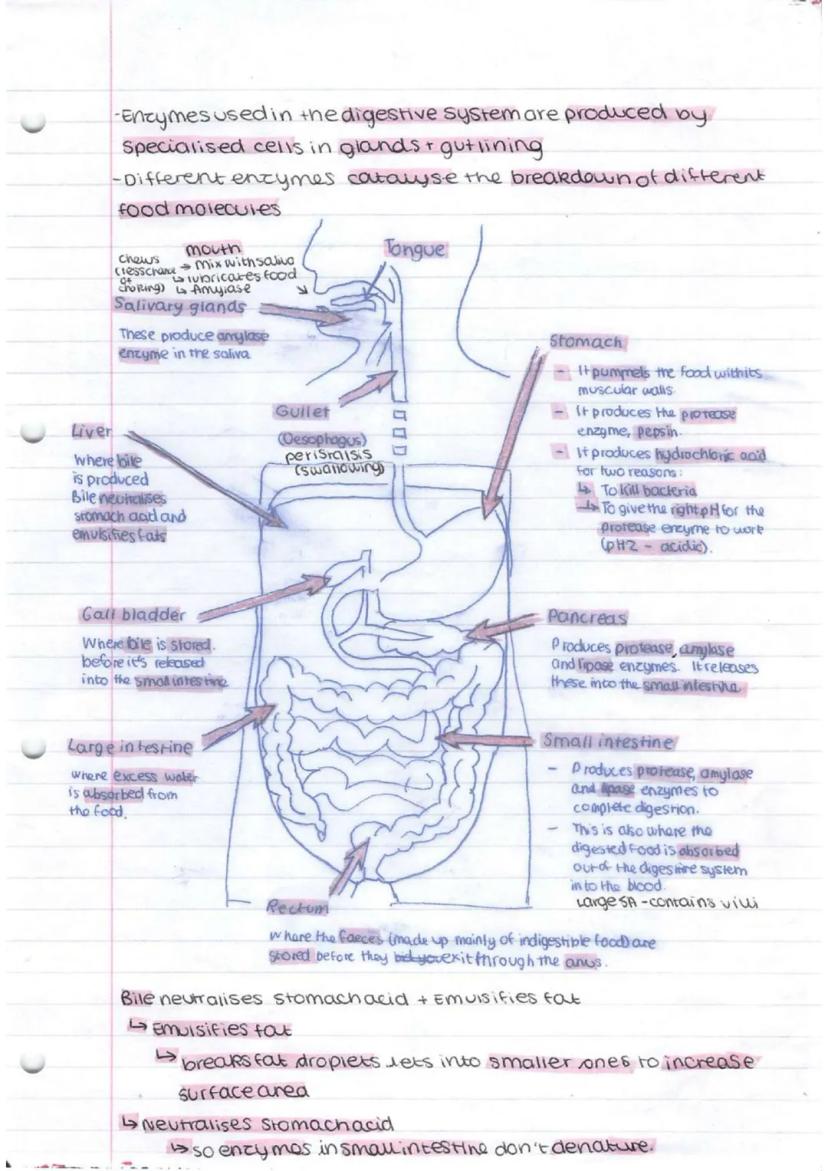 -Enzymes used in the digestive system are produced by
specialised cells in glands + gut lining
-Different enzymes catalyse the breakdown of different
food molecules
mouth
Chews
(less chance
of
choking)
→ Mix with saliva
↳ lubricates food
↳ Amylase
Tongue
Salivary glands
These produce amylase
enzyme in the saliva
Gullet
(Oesophagus)
peristalsis
(swallowing)
Stomach
- It pummels the food with its
muscular walls.
- It produces the protease
enzyme, pepsin.
- It produces hydrochloric acid
for two reasons:
↳ To kill bacteria
↳ To give the right pH for the
protease enzyme to work
(pH2 - acidic).
Liver
Where bile
is produced
Bile neutralises
stomach acid and
emulsifies fats
Gall bladder
Where bile is stored.
before it's released
into the small intestine
Pancreas
Produces protease, amylase
and lipase enzymes. It releases
these into the small intestine
Large intestine
where excess water
is absorbed from
the food.
Small intestine
- Produces protease, amylase
and lipase enzymes to
complete digestion.
- This is also where the
digested food is absorbed
out of the digestive system
into the blood.
Large SA - contains villi
Rectum
Where the faeces (made up mainly of indigestible food) are
stored before they exit through the anus.
Bile neutralises stomach acid + Emulsifies fat
↳ Emulsifies fat
↳ breaks fat droplets lets into smaller ones to increase
surface area
↳ Neutralises stomach acid
↳ so enzymes in small intestine don't denature.